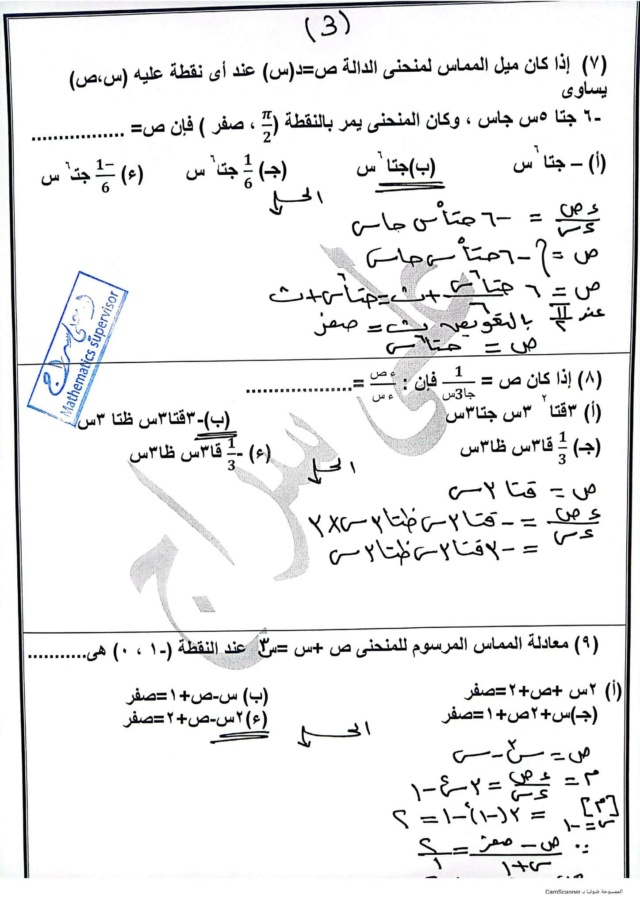 (3)
(٧) إذا كان ميل المماس لمنحنى الدالة ص=د(س) عند أى نقطة عليه (س،ص)
يساوى
-٦ جتا ٥س جاس ، وكان المنحنى يمر بالنقطة (π/2 ، صفر ) فإن ص= ...............
(أ) – جتا٦س (ب)جتا٦س (جـ) 1/6 جتا٦س (ء) 1-/6 جتـ٦س
الحل
ءص/ءس = -٦ جتا٥س جاس
ص = ∫ -٦ جتا٥س جاس
ص = ٦ جتا٦س/٦ + ث = جتا٦س + ث
عند π/٢ بالتعويض ث = صفر
ص = جتا٦س
(٨) إذا كان ص = 1/جا3س فإن : ءص/ءس =...................
(أ) ٣قتا٢ ٣س جتا٣س (ب)-٣قتا٣س ظتا ٣س
(جـ) 1/3 قا٣س ظا٣س (ء) -1/3 قا٣س ظا٣س
الحل
ص = قتا ٣س
ءص/ءس = - قتا ٣س ظتا ٣س × ٣
= -٣ قتا ٣س ظتا ٣س
(٩) معادلة المماس المرسوم للمنحنى ص +س =س٣ عند النقطة (-١ ، ٠) هى...........
(أ) ٢س +ص+٢=صفر (ب) س-ص+١=صفر
(جـ)س+٢ص+١=صفر (ء)٢س-ص+٢=صفر
الحل
ص = س٣ - س
م = ءص/ءس = ٣س٢ - ١
[م] س=-١ = ٣(-١)٢ - ١ = ٢
∵ ص - صفر/س+١ = ٢/١
Mathematics supervisor
الممسوحة ضوئيا بـ CamScanner